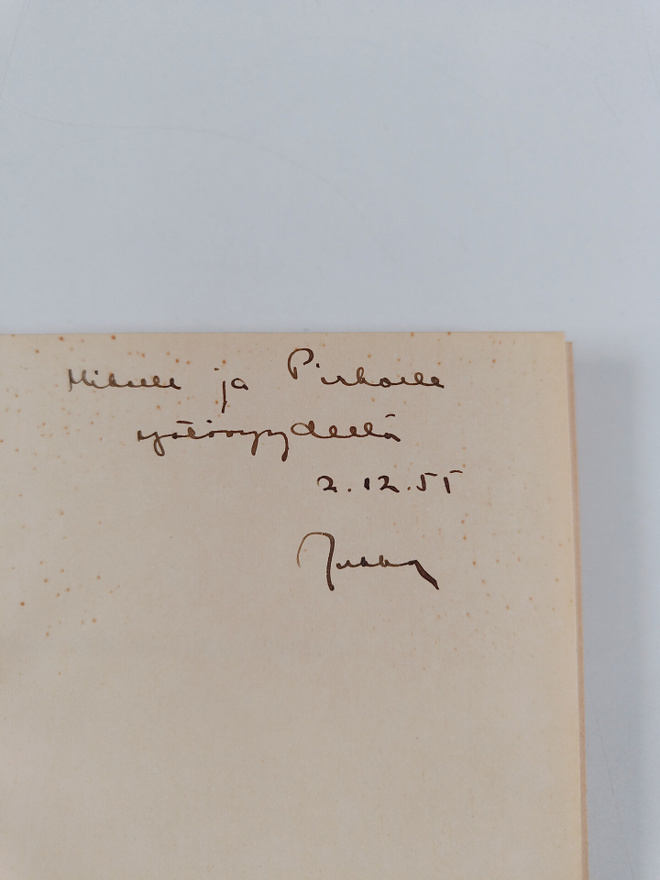 Mikalle ja Pirkolle
ystävyydellä
2.12.55
Jukka